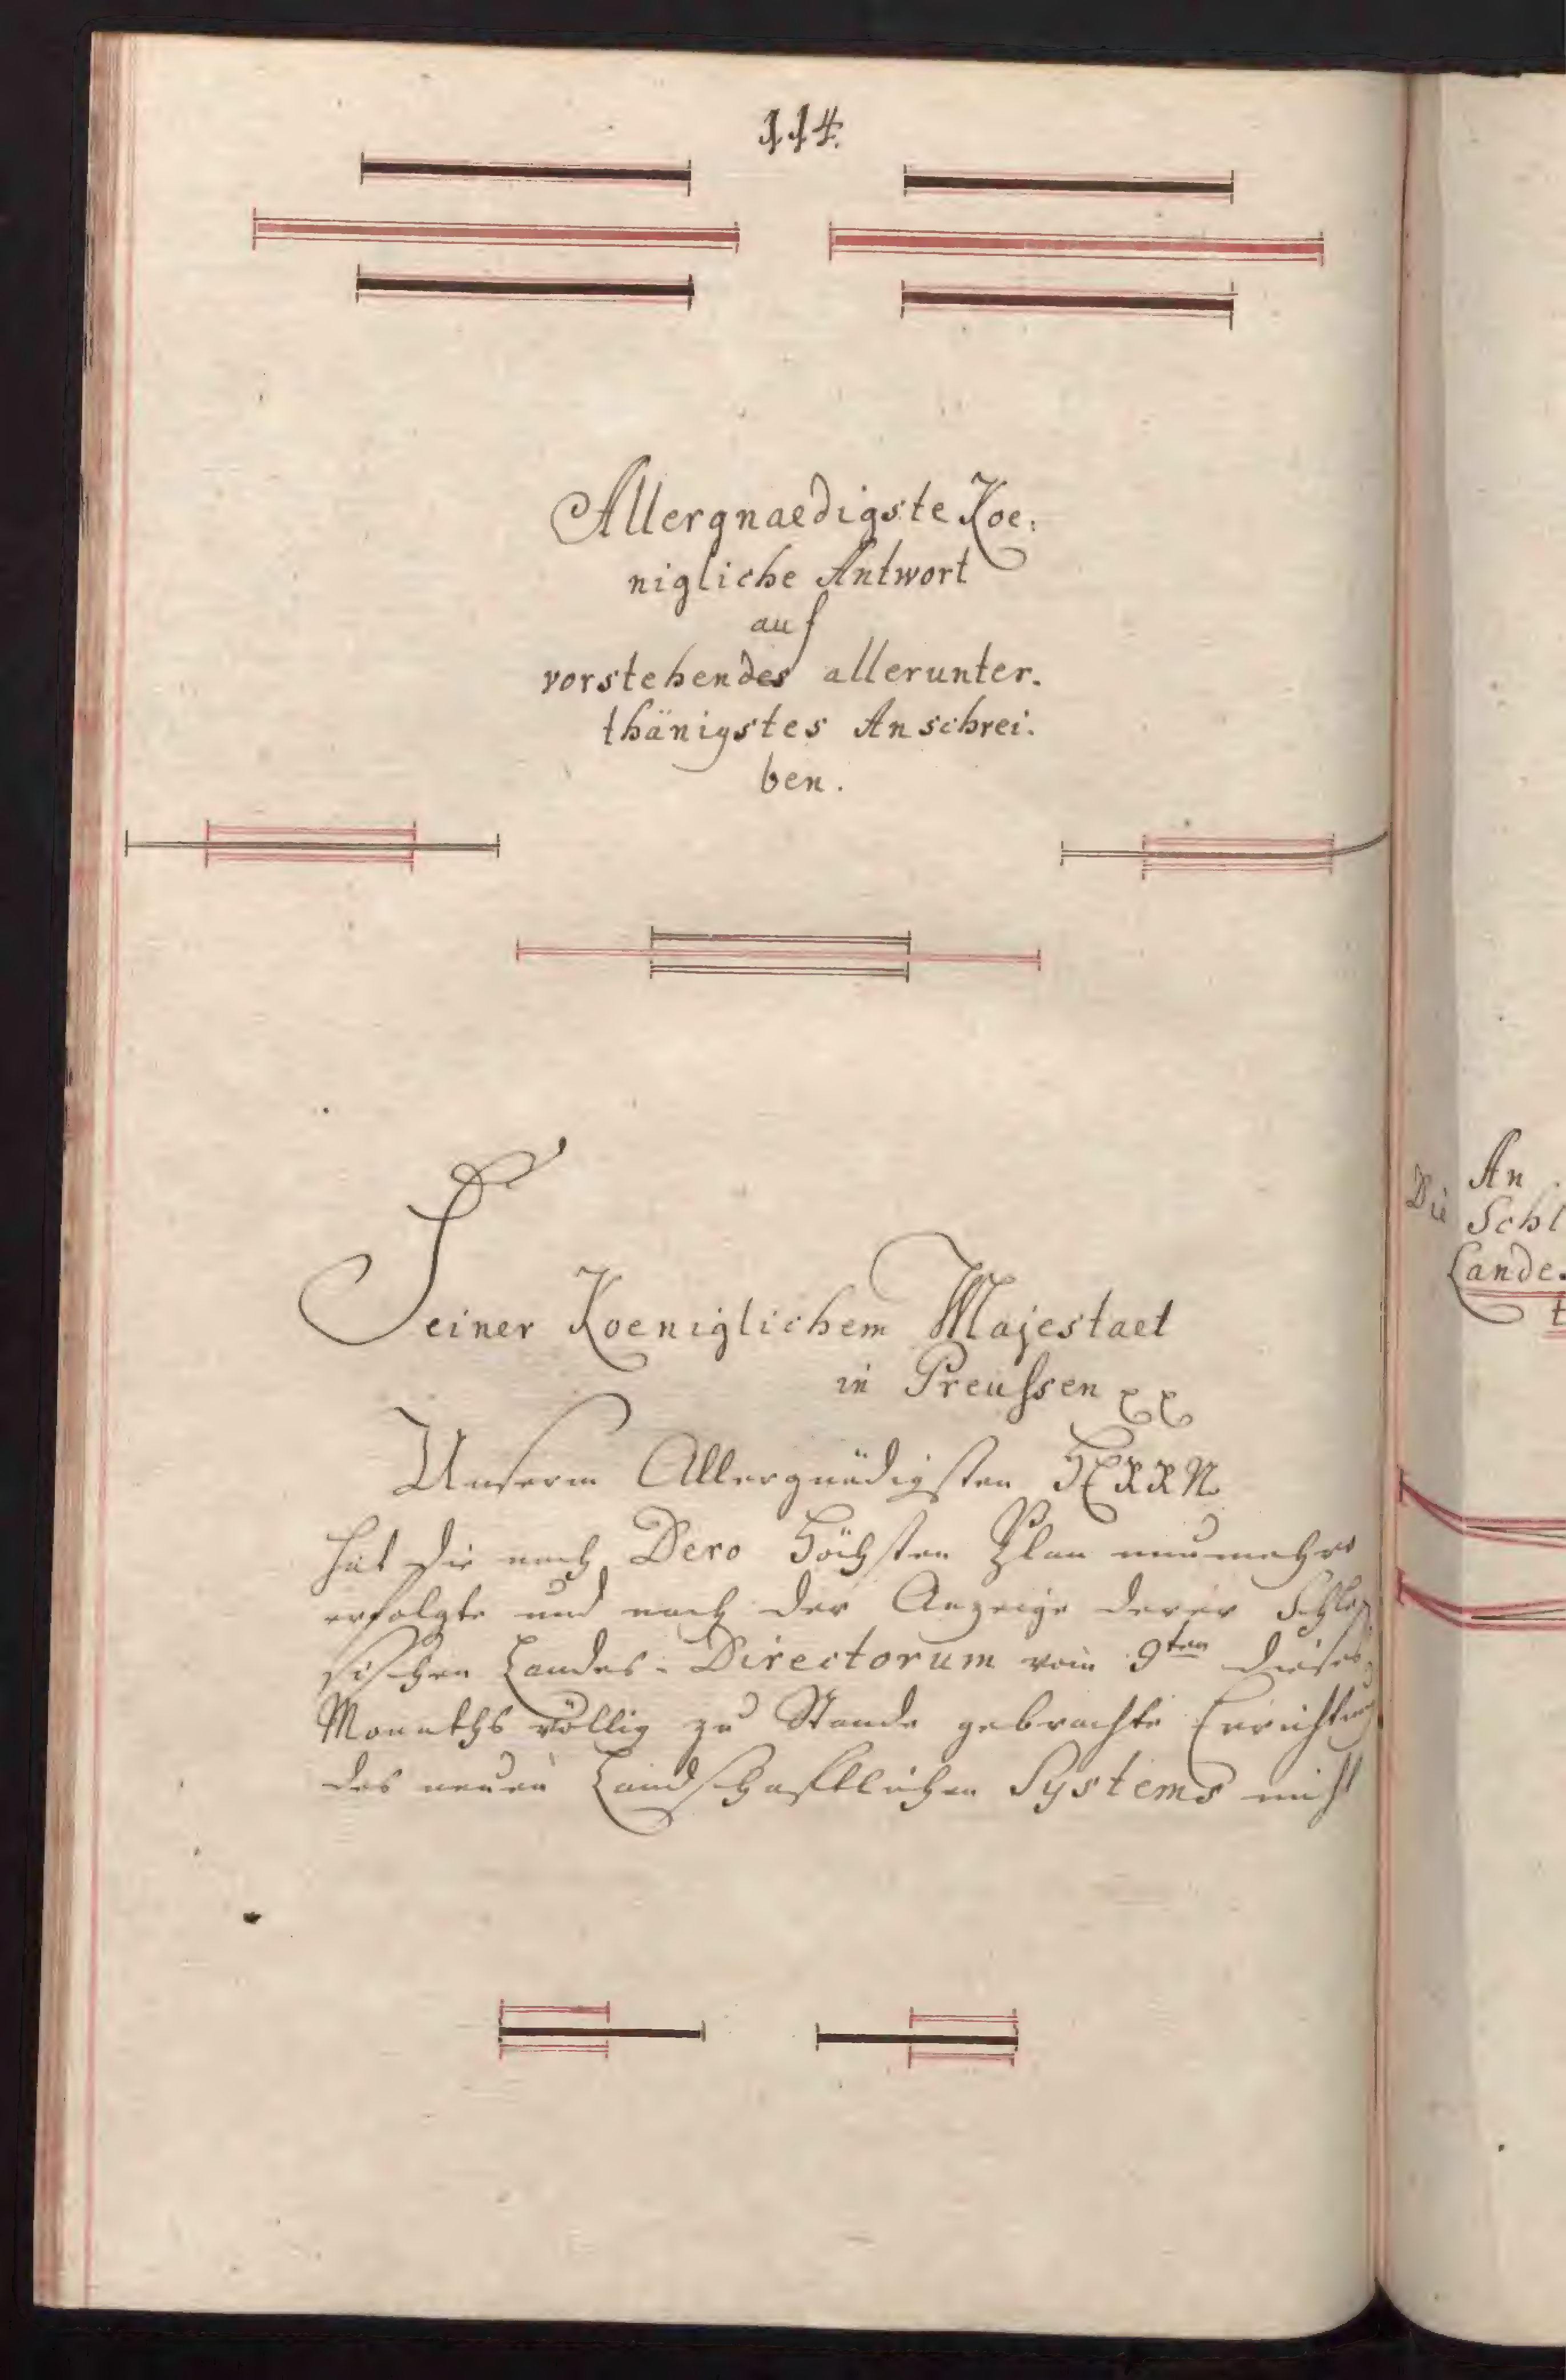 114.
Allergnaedigste Koe:
nigliche Antwort
auf
vorstehendes allerunter.
thänigstes Anschrei.
ben.
Seiner Koeniglichem Majestaet
in Preussen
Unserm Allergnädigsten HERRN
hat die nach Dero Höchsten Plan nunmehro
erfolgte und nach der Anzeige derer Schle
sischen Landes-Directorum vom 9ten dieses
Monaths völlig zu Stande gebrachte Errichtung
des neuen Landschafftlichen Systems nicht
An
Die Schl
Lande.
t